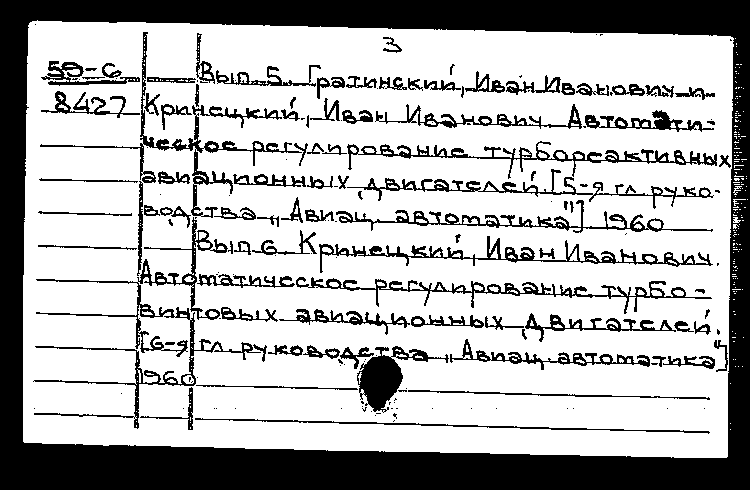 3
59-6 Вып. 5. Гратинский, Иван Иванович и
8427 Кринецкий, Иван Иванович. Автомати-
ческое регулирование турбореактивных
авиационных двигателей. [5-я гл. руко-
водства „Авиац. автоматика"] 1960
Вып. 6. Кринецкий, Иван Иванович.
Автоматическое регулирование турбо-
винтовых авиационных двигателей.
[6-я гл. руководства „Авиац. автоматика"]
1960